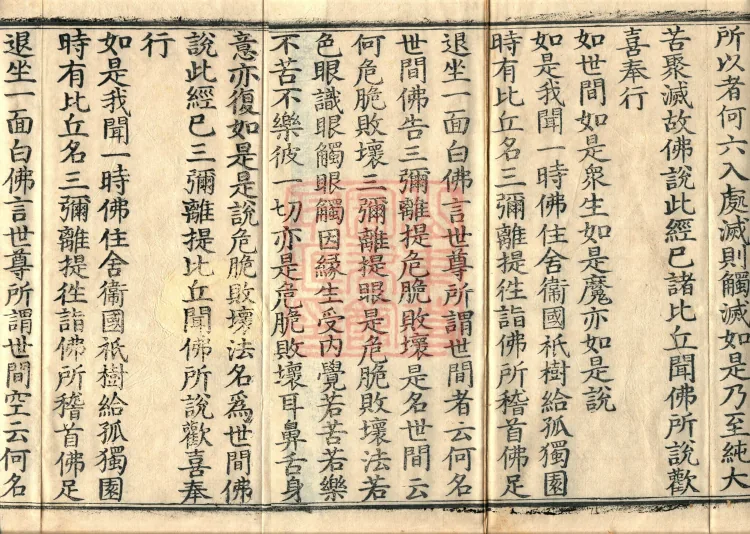 所以者何六入處滅則觸滅如是乃至純大
苦聚滅故佛說此經已諸比丘聞佛所說歡
喜奉行
如世間如是衆生如是魔亦如是說
如是我聞一時佛住舍衞國祇樹給孤獨園
時有比丘名三彌離提徃詣佛所稽首佛足
退坐一面白佛言世尊所謂世間者云何名
世間佛告三彌離提危脆敗壞是名世間云
何危脆敗壞三彌離提眼是危脆敗壞法若
色眼識眼觸眼觸因緣生受內覺若苦若樂
不苦不樂彼一切亦是危脆敗壞耳鼻舌身
意亦復如是是說危脆敗壞法名爲世間佛
說此經已三彌離提比丘聞佛所說歡喜奉
行
如是我聞一時佛住舍衞國祇樹給孤獨園
時有比丘名三彌離提徃詣佛所稽首佛足
退坐一面白佛言世尊所謂世間空云何名